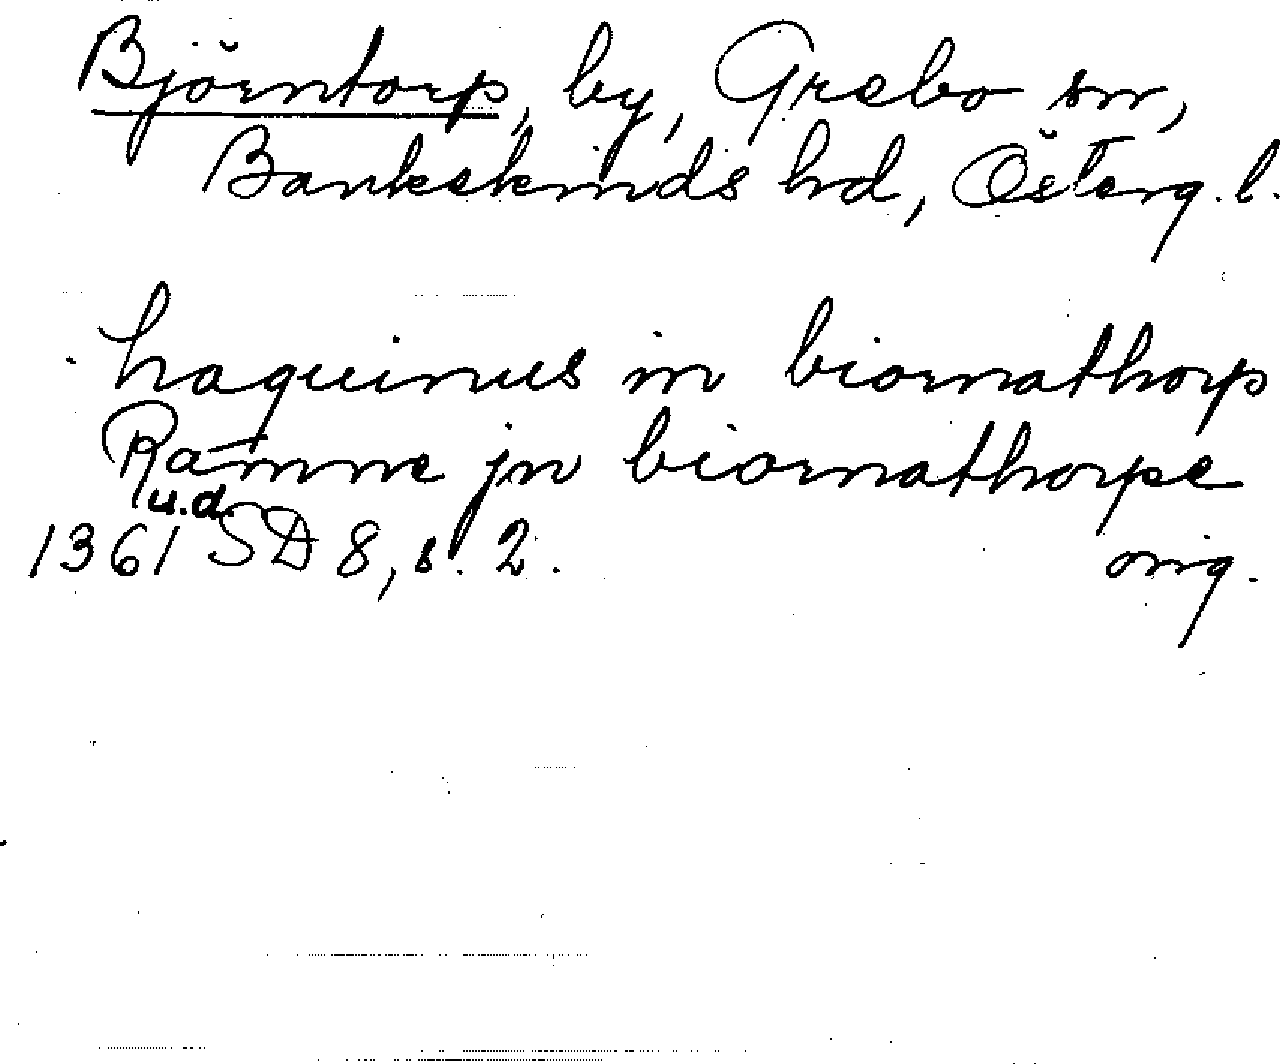 Björntorp, by, Grebo sn,
Bankekinds hd, Österg. l.
haquinus in biornathorp
Ramne jn biornathorpe
u.d.
1361 SD 8, s. 2. orig.